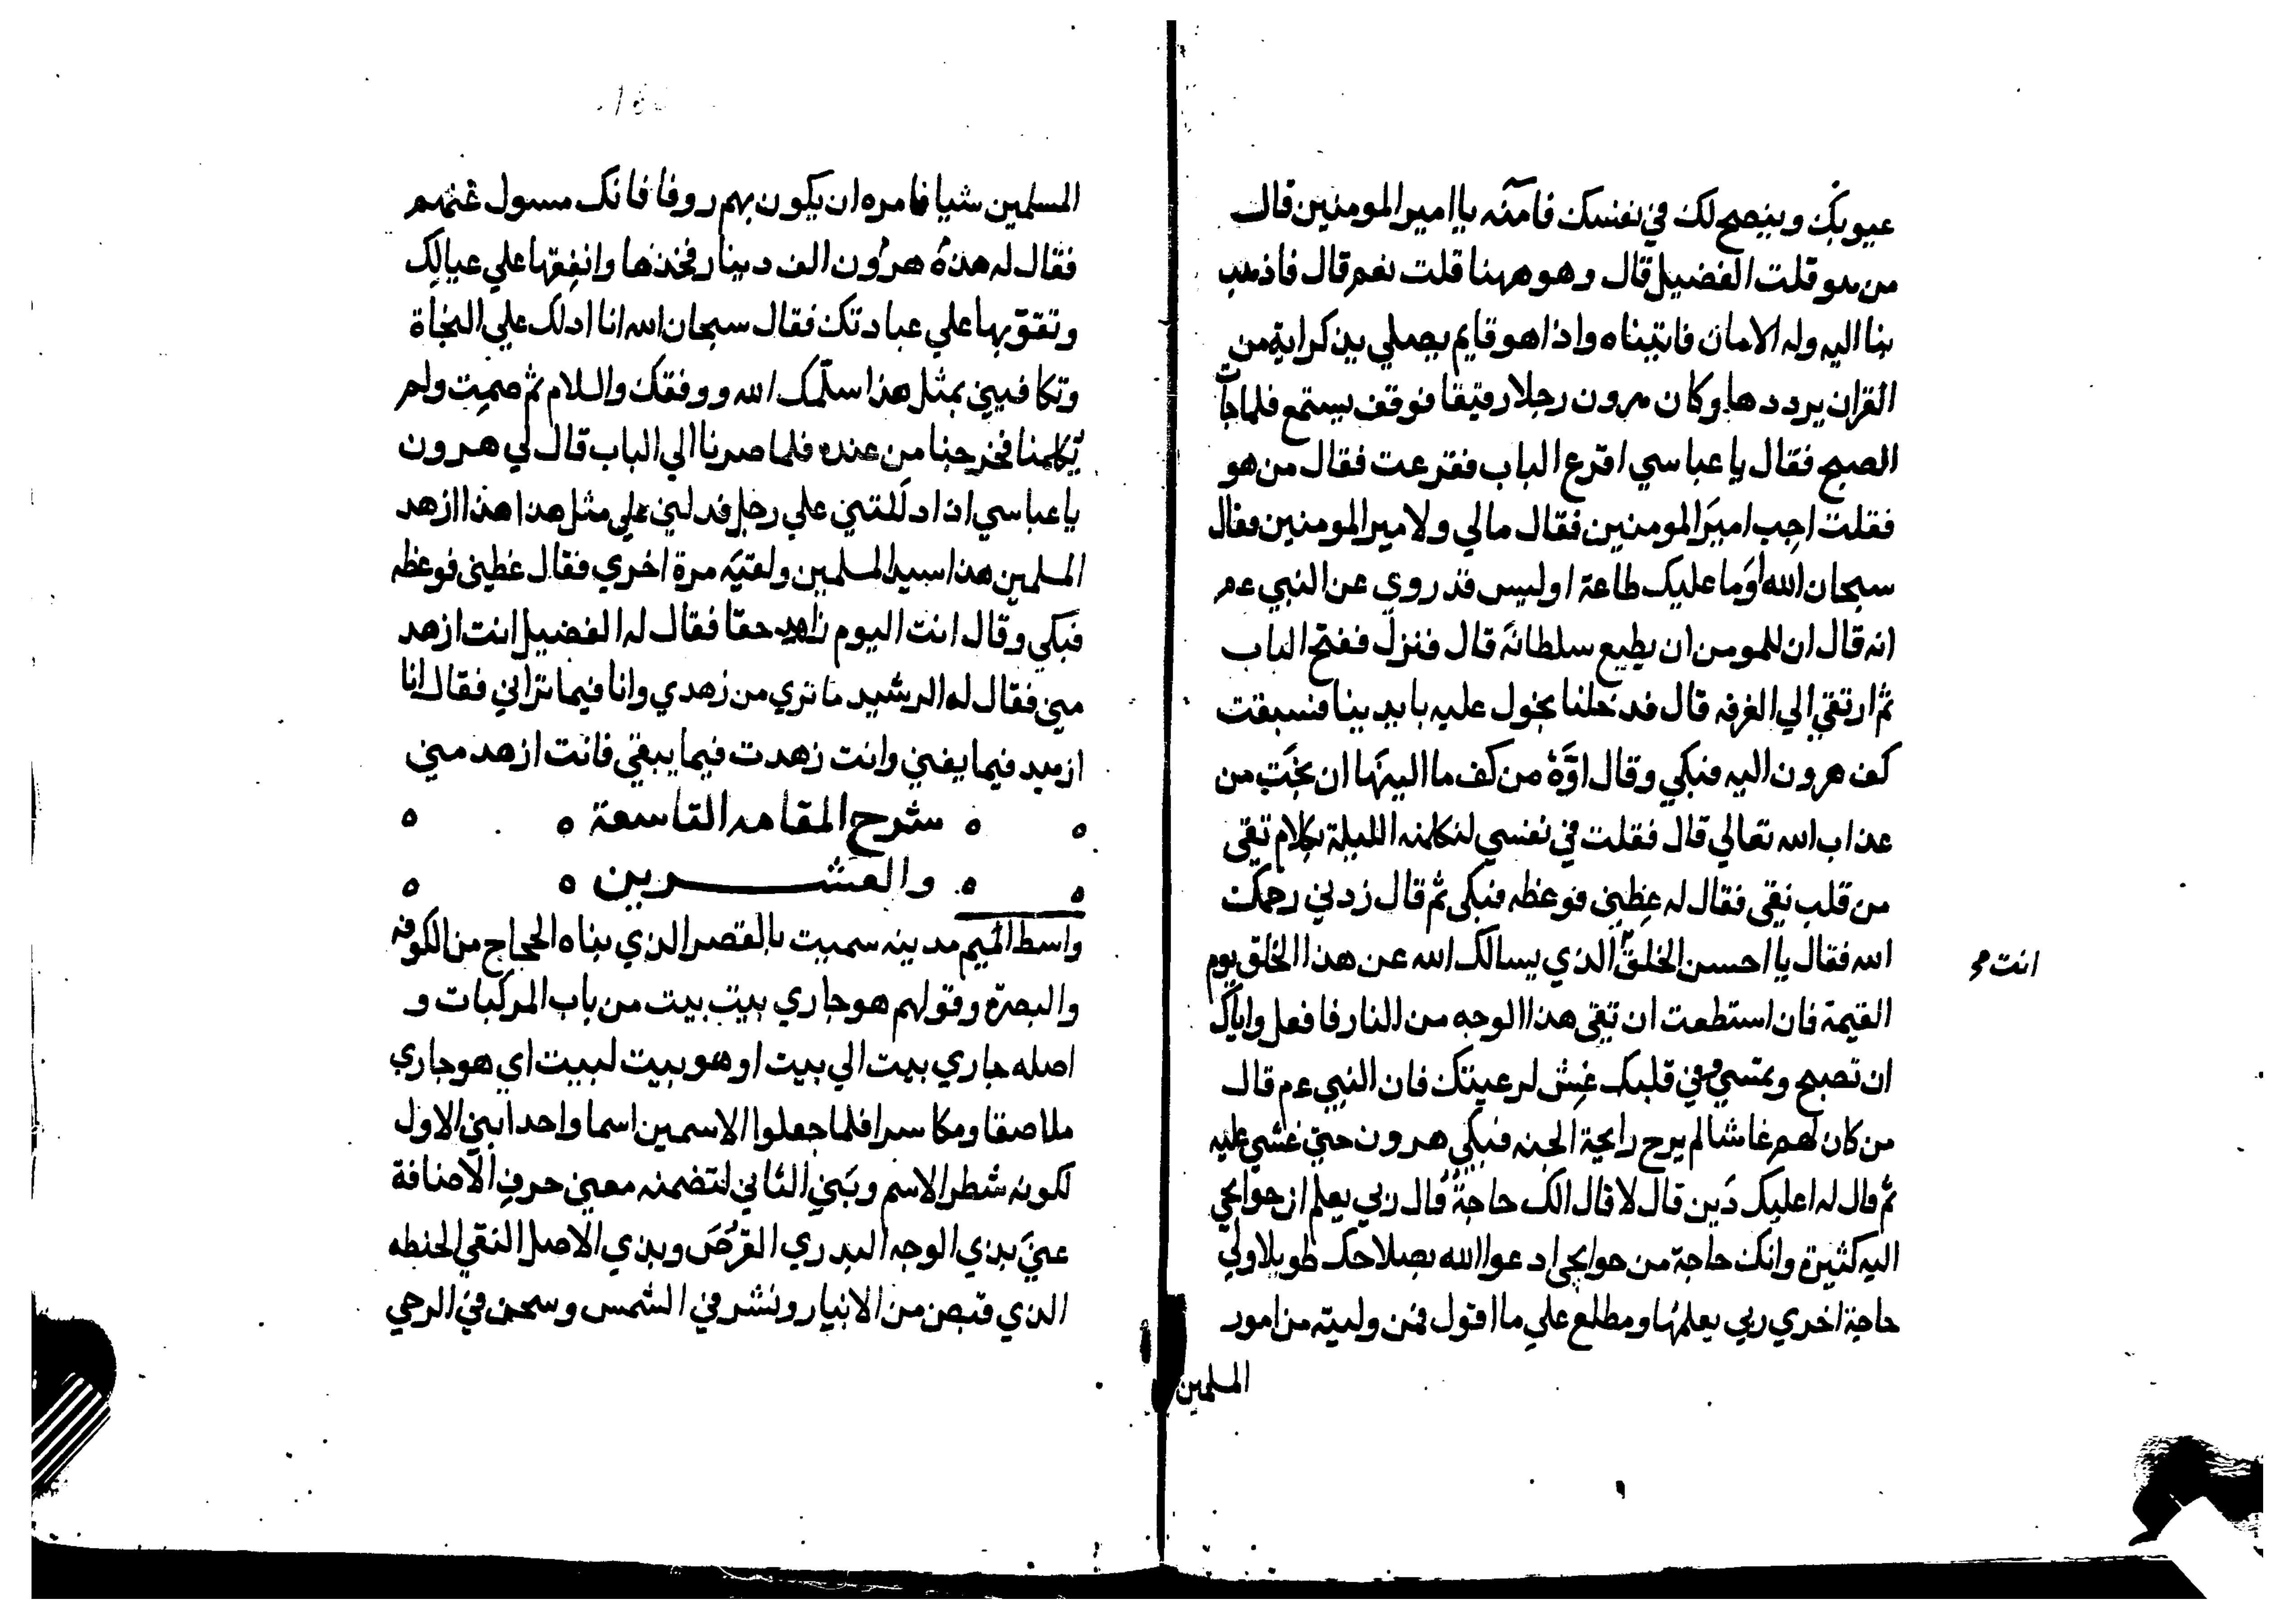 عيوبك وينصح لك في نفسك فامنه يا امير المومنين قال
من هو قلت الفضيل قال وهو ههنا قلت نعم قال فاذهب
بنا اليه وله الامان فاتيناه واذا هو قايم يصلي بين كراية من
القران يرددها وكان هرون رجلا رقيقا فوقف يستمع فلما جات
الصبح فقال يا عباسي اقرع الباب فقرعت فقال من هو
فقلت اجب امير المومنين فقال مالي ولامير المومنين فقال
سبحان الله اوما عليك طاعة اوليس قد روي عن النبي عم
انه قال ان للمومن ان يطيع سلطانه قال فنزل ففتح الباب
ثم ارتقي الي الغرفه قال فدخلنا نجول عليه بايدينا فسبقت
كف هرون اليه فبكي وقال اوه من كف ما الينها ان نجت من
عذاب الله تعالي قال فقلت في نفسي لنكلمنه الليلة بكلام تقي
من قلب نقي فقال له عظني فوعظه فبكي ثم قال زدني رحمك
الله فقال يا احسن الخلق الذي يسالك الله عن هذا الخلق يوم
انت
القيمة فان استطعت ان تقي هذا الوجه من النار فافعل واياك
ان تصبح وتمسي وفي قلبك غش لرعيتك فان النبي عم قال
من كان لهم غاشا لم يرح رايحة الجنه فبكي هرون حتي غشي عليه
ثم قال له اعليك دين قال لا قال الك حاجة قال ربي يعلم ان حوايجي
اليه كثيرة وانك حاجة من حوايجي ادعوا الله بصلاحك طويلا ولي
حاجة اخري ربي يعلمها ومطلع علي ما اقول فمن وليته من امور
المسلمين
المسلمين شيا فامره ان يكون بهم روفا فانك مسول عنهم
فقال له هذه هرون الف دينار فخذها وانفقها علي عيالك
وتقو بها علي عبادتك فقال سبحان الله انا ادلك علي النجاة
وتكافيني بمثل هذا سلمك الله ووفقك والسلام ثم صمت ولم
يكلمنا فخرجنا من عنده فلما صرنا الي الباب قال لي هرون
يا عباسي اذا دللتني علي رجل فدلني علي مثل هذا هذا ازهد
المسلمين هذا سيد المسلمين ولقيه مرة اخري فقال عظيني فوعظه
فبكي وقال انت اليوم زاهد حقا فقال له الفضيل انت ازهد
مني فقال له الرشيد ما تري من زهدي وانا فيما تراني فقال انا
ازهد فيما يفني وانت زهدت فيما يبقي فانت ازهد مني
شرح المقامه التاسعة
والعشرين
واسط الميم مدينه سميت بالقصر الذي بناه الحجاج من الكوفه
والبصرة وقولهم هو جاري بيت بيت من باب المركبات و
اصله جاري بيت الي بيت او هو بيت لبيت اي هو جاري
ملاصقا ومكاسرا فلما جعلوا الاسمين اسما واحدا بني الاول
لكونه شطر الاسم وبني الثاني لتضمنه معني حرف الاضافة
عني بذي الوجه البدري القرص وبذي الاصل النقي الحنطه
الذي قبض من الانبار ونشر في الشمس وسحن في الرحي